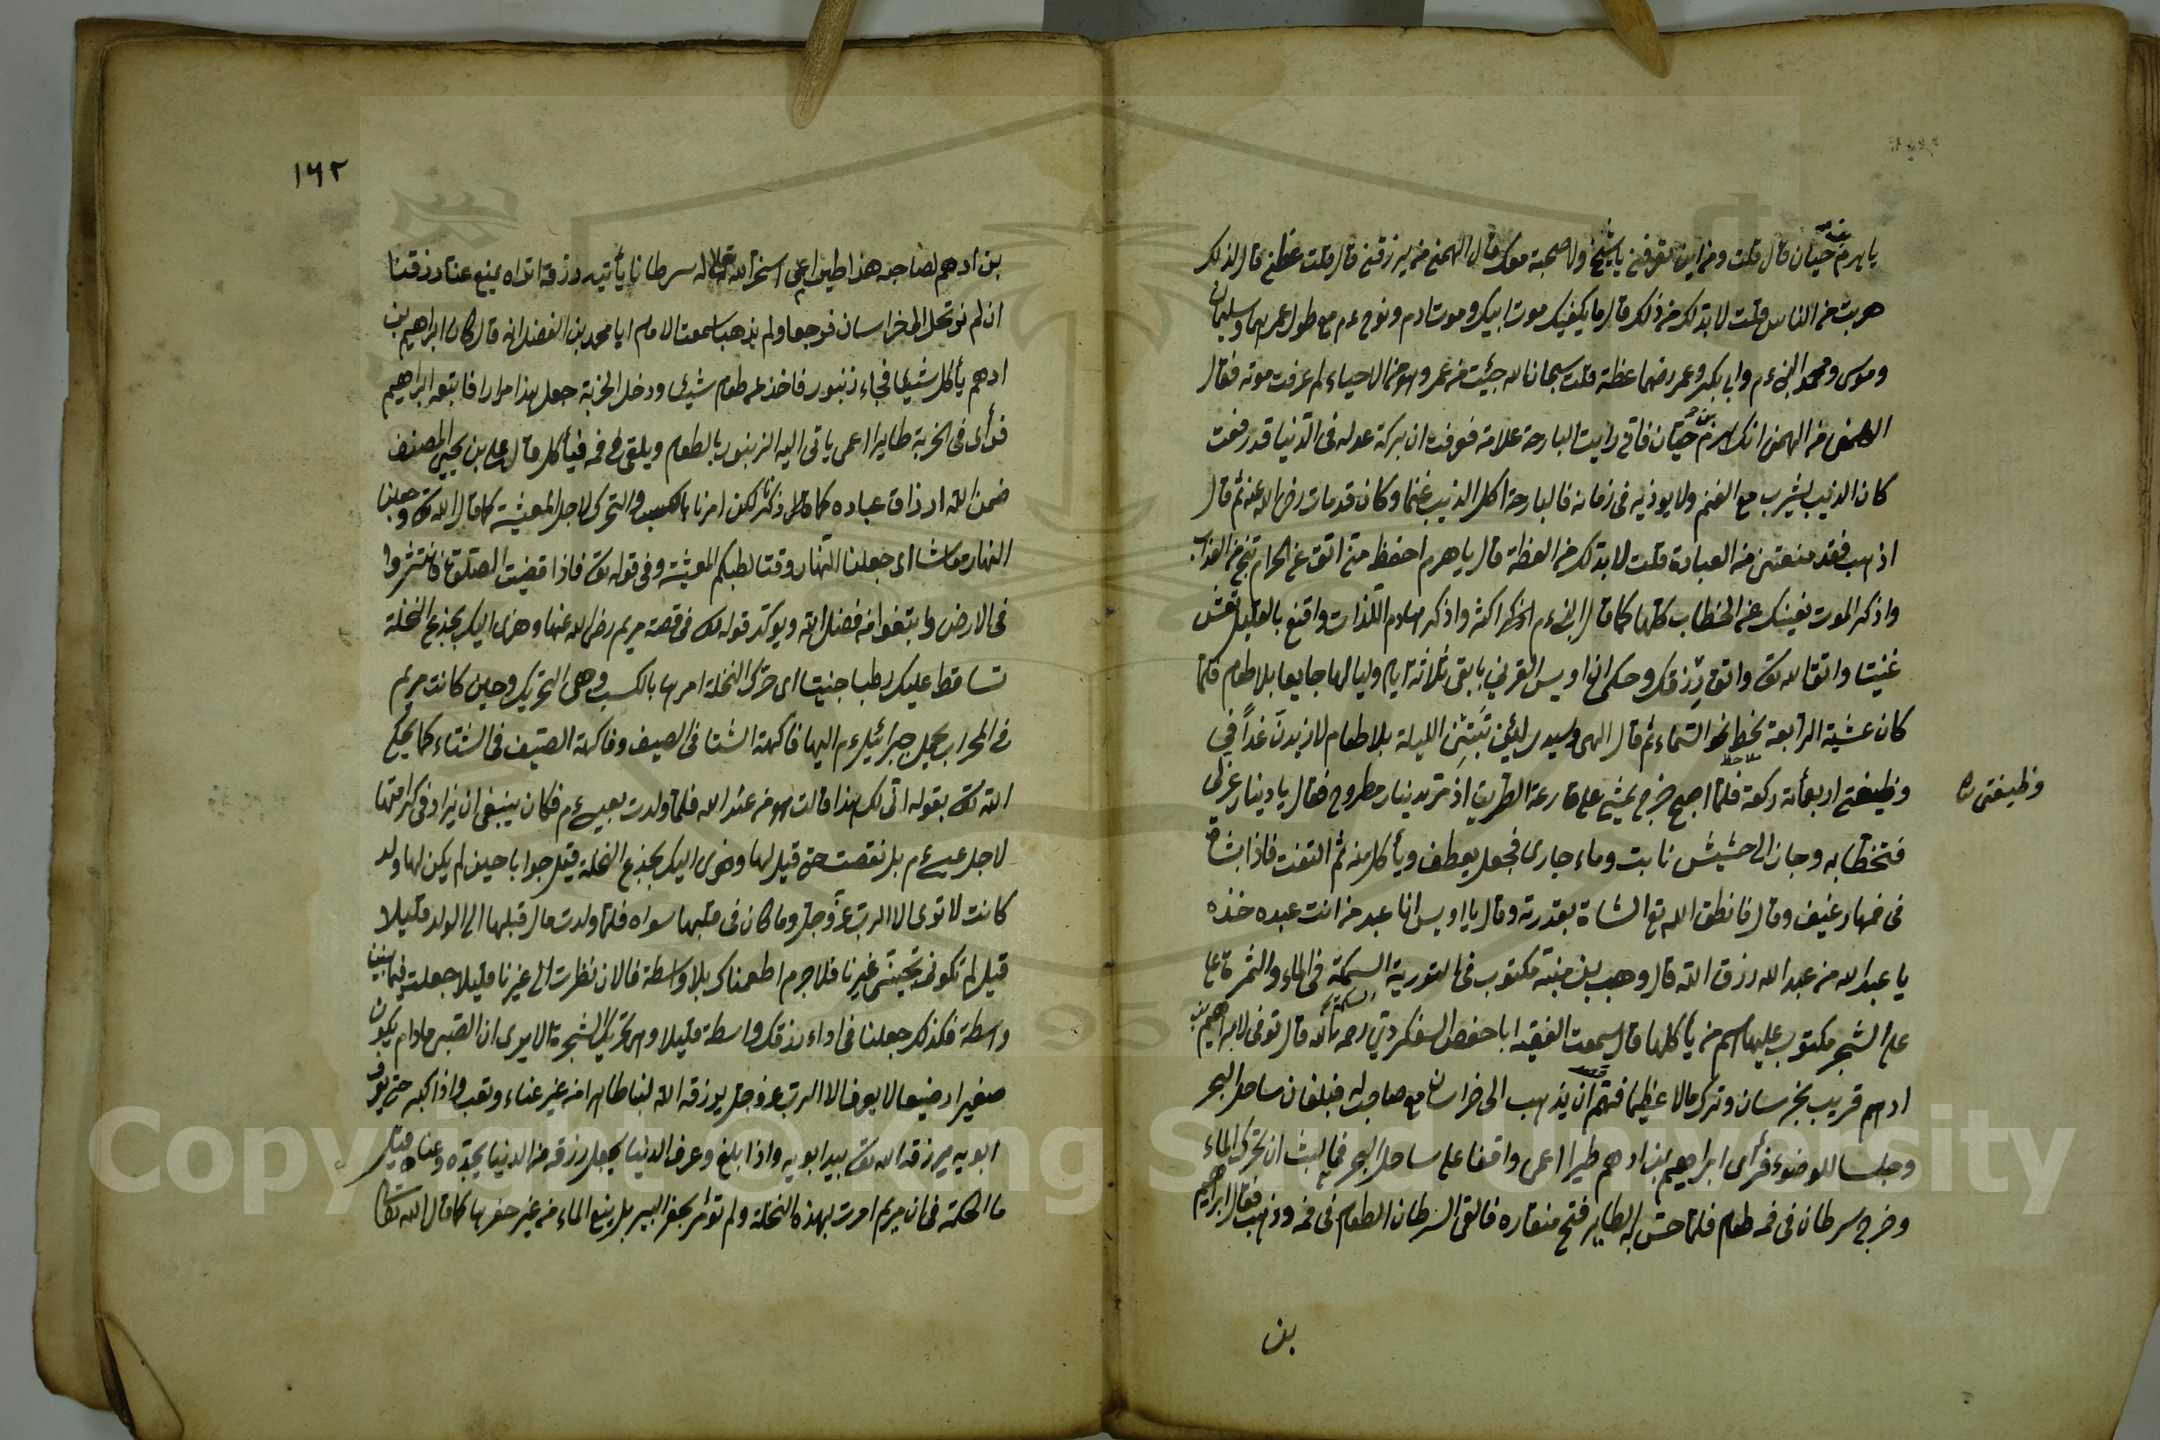 يا هرم بن حيان قال قلت ومن اين تعرفنى يا شيخ ولا صحبة معك قال الهمنى من يرزقنى قال قلت عظنى قال لذلك
هربت من الناس قلت لا بد لك من ذلك قال ما يكفيك موت ابيك وموت ادم ونوح ءم مع طول عمرهما وسليمان
وموسى ومحمد النبى ءم وابى بكر وعمر رضهما عظة قلت سبحان الله جئت من عمر وهو من الاحياء لم عرفت موته فقال
الهمنى من الهمنى انك هرم بن حيان فانى رايت البارحة علامة فوفده ان بركة عدله فى الدنيا قد رفعت
كان الذيب يشرب مع الغنم ولا يوذيه فى زمانه فالبارحة اكل الذيب غنما وكان قد مات رضى الله عنه ثم قال
اذهب فقد منعتنى من العبادة قلت لا بد لك من العظة قال يا هرم احفظ منى اتق عن الحرام تنج من العذاب
واذكر الموت يغنيك عن الخطاب كلها كما قال النبى ءم اكثر واذكر هادم اللذات واقنع بالقليل تعش
غنيا واتق الله تعالى واثق برزقك وحكى ان اويس القرنى بايقى ثلاثة ايام ولياليها جايعا بلا طعام فلما
كان عشية الرابعة يخط نحو السماء ثم قال الهى وسيدى لئن تبتنى الليلة بلا طعام لازيدن غدا فى
وظيفتى اربعمأنة ركعة فلما اصبح خرج يمشى على قارعة الطريق اذ مر بدينار مطروح فقال يا دينار غرلى
فتخطا به وجاز الى حشيش نابت وماء جارى فجعل يعطف ويأكل منه ثم التفت فاذا بشاة
فى فمها رغيف وقال فانطق الله تع الشاة بقدرته وقال يا اويس انا عبد من انت عبده خذه
يا عبد الله من عبد الله رزق الله قال وهب بن منبه مكتوب فى التورية السمكة فى الماء والثمرة على
على الشجر مكتوب عليها اسم من يأكلها قال سمعت الفقيه ابا حفص السفكردى رحمه الله قال توفى لابراهيم بن
ادهم قريب بخرسان وترك مالا عظيما فهم ان يذهب الى خراسان مع صاحب له فبلغا ساحل البحر
وجلسا للوضوء فرأى ابراهيم بن ادهم طيرا اعمى واقفا على ساحل البحر فما لبث ان تحرك الماء
وخرج سرطان فى فمه طعام فلما حس به الطاير فتح منقاره فالقى السرطان الطعام فى فمه وذهب فقال ابراهيم
بن
وظيفتى
١٦٢
بن ادهم لصاحبه هذا طير اعمى اسخر الله تعالى له سرطانا يأتيه رزقه اتراه يمنع عنا رزقنا
ان لم نرتحل الى خراسان فرجعا ولم يذهبا سمعت الامام ابا محمد بن الفضل انه قال كان ابراهيم بن
ادهم يأكل شيئا فجاء زنبور فاخذ من طعام شيئا ودخل الخربة جعل هذا مرارا فاتبعه ابراهيم
فرأى فى الخربة طايرا اعمى ياتى اليه الزنبور بالطعام ويلقى فى فمه فيأكل قال على بن يحيى المصنف
ضمن الله ارزاق عباده كما قال ذكرنا لكن امرنا بالكسب والتحرك لاجل المعيشة كما قال الله تع وجعلنا
النهار معاشا اى جعلنا النهار وقتا لطلبكم المعيشة وفى قوله تع فاذا قضيت الصلوة فانتشروا
فى الارض وابتغوا من فضل الله ويوكد قوله تع فى قصة مريم رضى الله عنها وهزى اليك بجذع النخلة
تساقط عليك رطبا جنيا اى حرك النخلة امرها بالكسب وهى التحريك وحين كانت مريم
فى المحراب يحمل جبرائيل ءم اليها فاكهة الشتا فى الصيف وفاكهة الصيف فى الشتاء كما يحكى
الله تع بقوله انى لك هذا قالت هو من عند الله فلما ولدت بعيسى ءم فكان ينبغى ان يزاد فى كرامتها
لاجل عيسى ءم بل نقصت حتى قيل لها وهزى اليك بجذع النخلة قيل جوابا حين لم يكن لها ولد
كانت لا ترى الا الرب عز وجل وما كان فى قلبها سواه فلما ولدت مال قلبها الى الولد قليلا
قيل لم تكونى تحبين غيرنا فلا جرم اطعمناك بلا واسطة فالان نظرت الى غيرنا قليلا جعلت فيما بيننا
واسطة فكذلك جعلنا فى اداء رزقك واسطة قليلا وهى تحريك الشجرة الا يرى ان الصبى مادام يكون
صغيرا رضيعا لا يعرف الا الرب عز وجل يرزقه الله لبنا طاهرا من غير عناء وتعب واذا كبر حتى يعرف
ابويه يرزقه الله تع بيد ابويه واذا بلغ وعرف الدنيا يجعل رزقه من الدنيا بجهده وعناه قيل
ما الحكمة فى ان مريم امرت بهذه النخلة ولم تؤمر بحفر البير بل ينبع الماء من غير حفرها كما قال الله تعالى